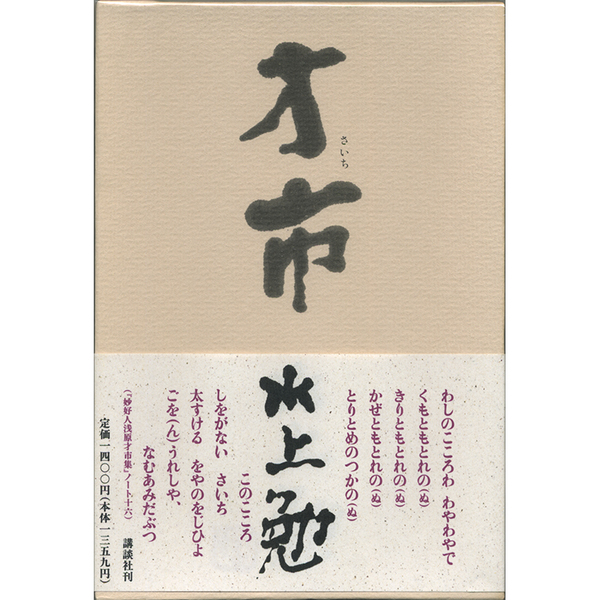 才市
さいち
水上勉
わしのこころわ わやわやで
くもともとれの(ぬ)
きりともとれの(ぬ)
かぜともとれの(ぬ)
とりとめのつかの(ぬ)
このこころ
しをがない さいち
太すける をやのをしひよ
ごを(ん)うれしや、
なむあみだぶつ
(『妙好人浅原才市集』ノート十六)
定価一四〇〇円(本体一三五九円) 講談社刊